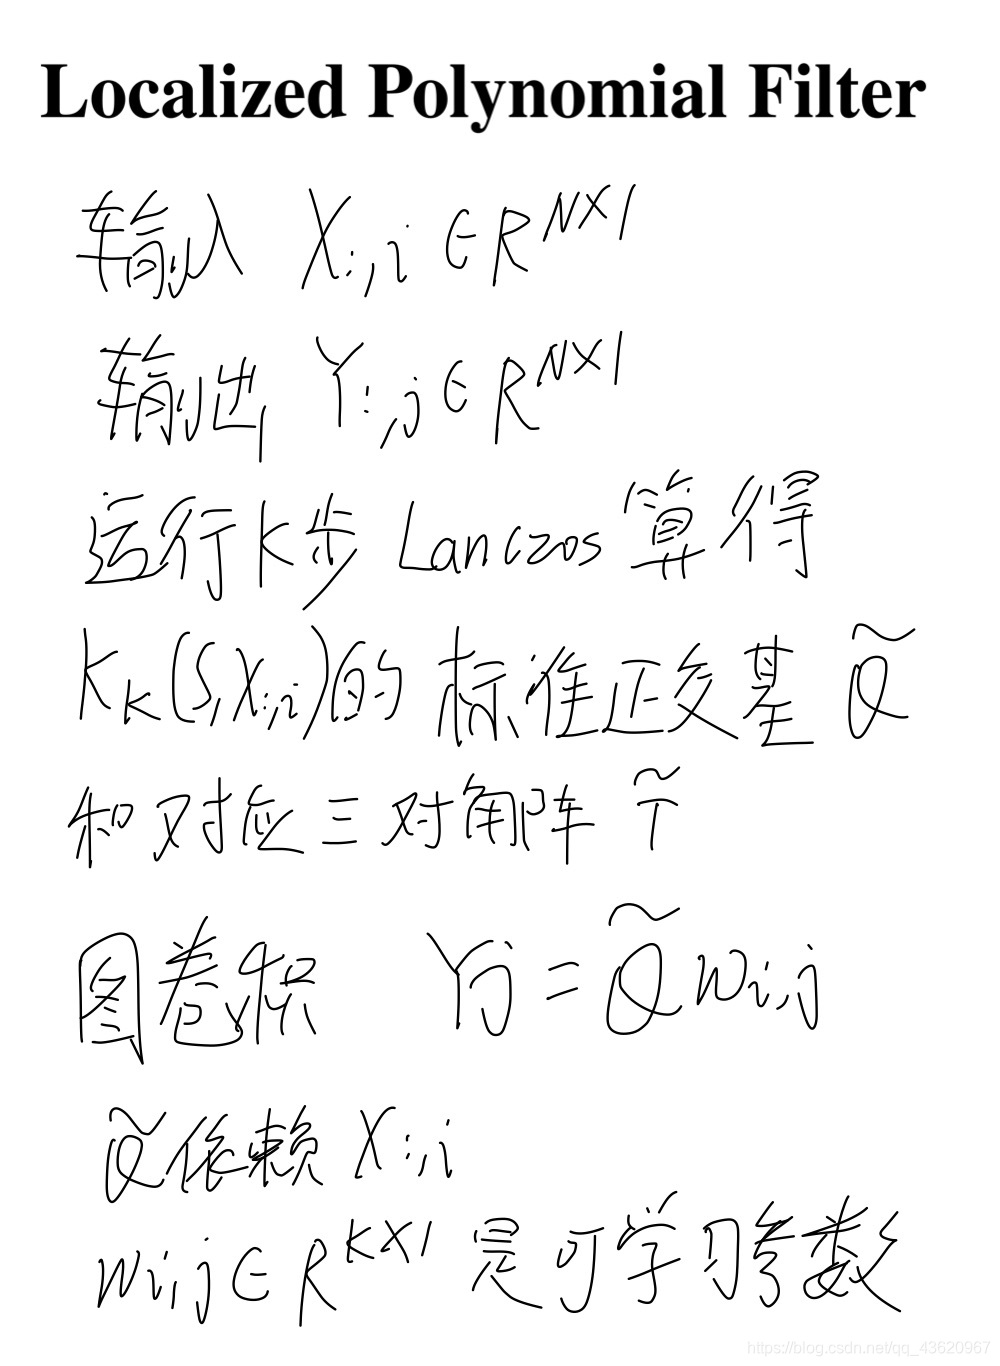 Localized Polynomial Filter
输入 X:,i ∈ R^{N×1}
输出 Y:,j ∈ R^{N×1}
运行K步 Lanczos 算得
K_K(S,X:,i)的 标准正交基 Q̃
和对应三对角阵 T̃
图卷积 Yj = Q̃ w_{i,j}
Q̃依赖 X:,i
w_{i,j} ∈ R^{K×1} 是可学习参数
https://blog.csdn.net/qq_43620967